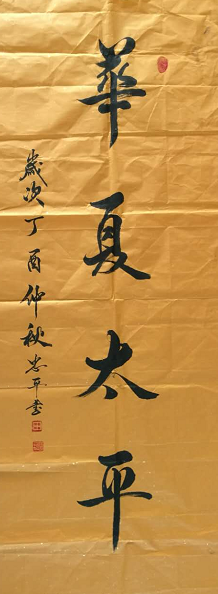 華夏太平
歲次丁酉仲秋忠平書